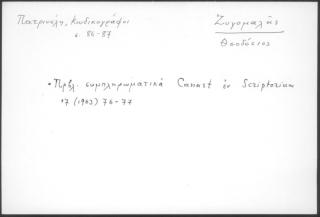 Πατρινέλη, Κωδικογράφοι
σ. 86-87
Ζυγομαλᾶς
Θεοδόσιος
• Πρβλ. συμπληρωματικά Canart ἐν Scriptorium
17 (1963) 76-77